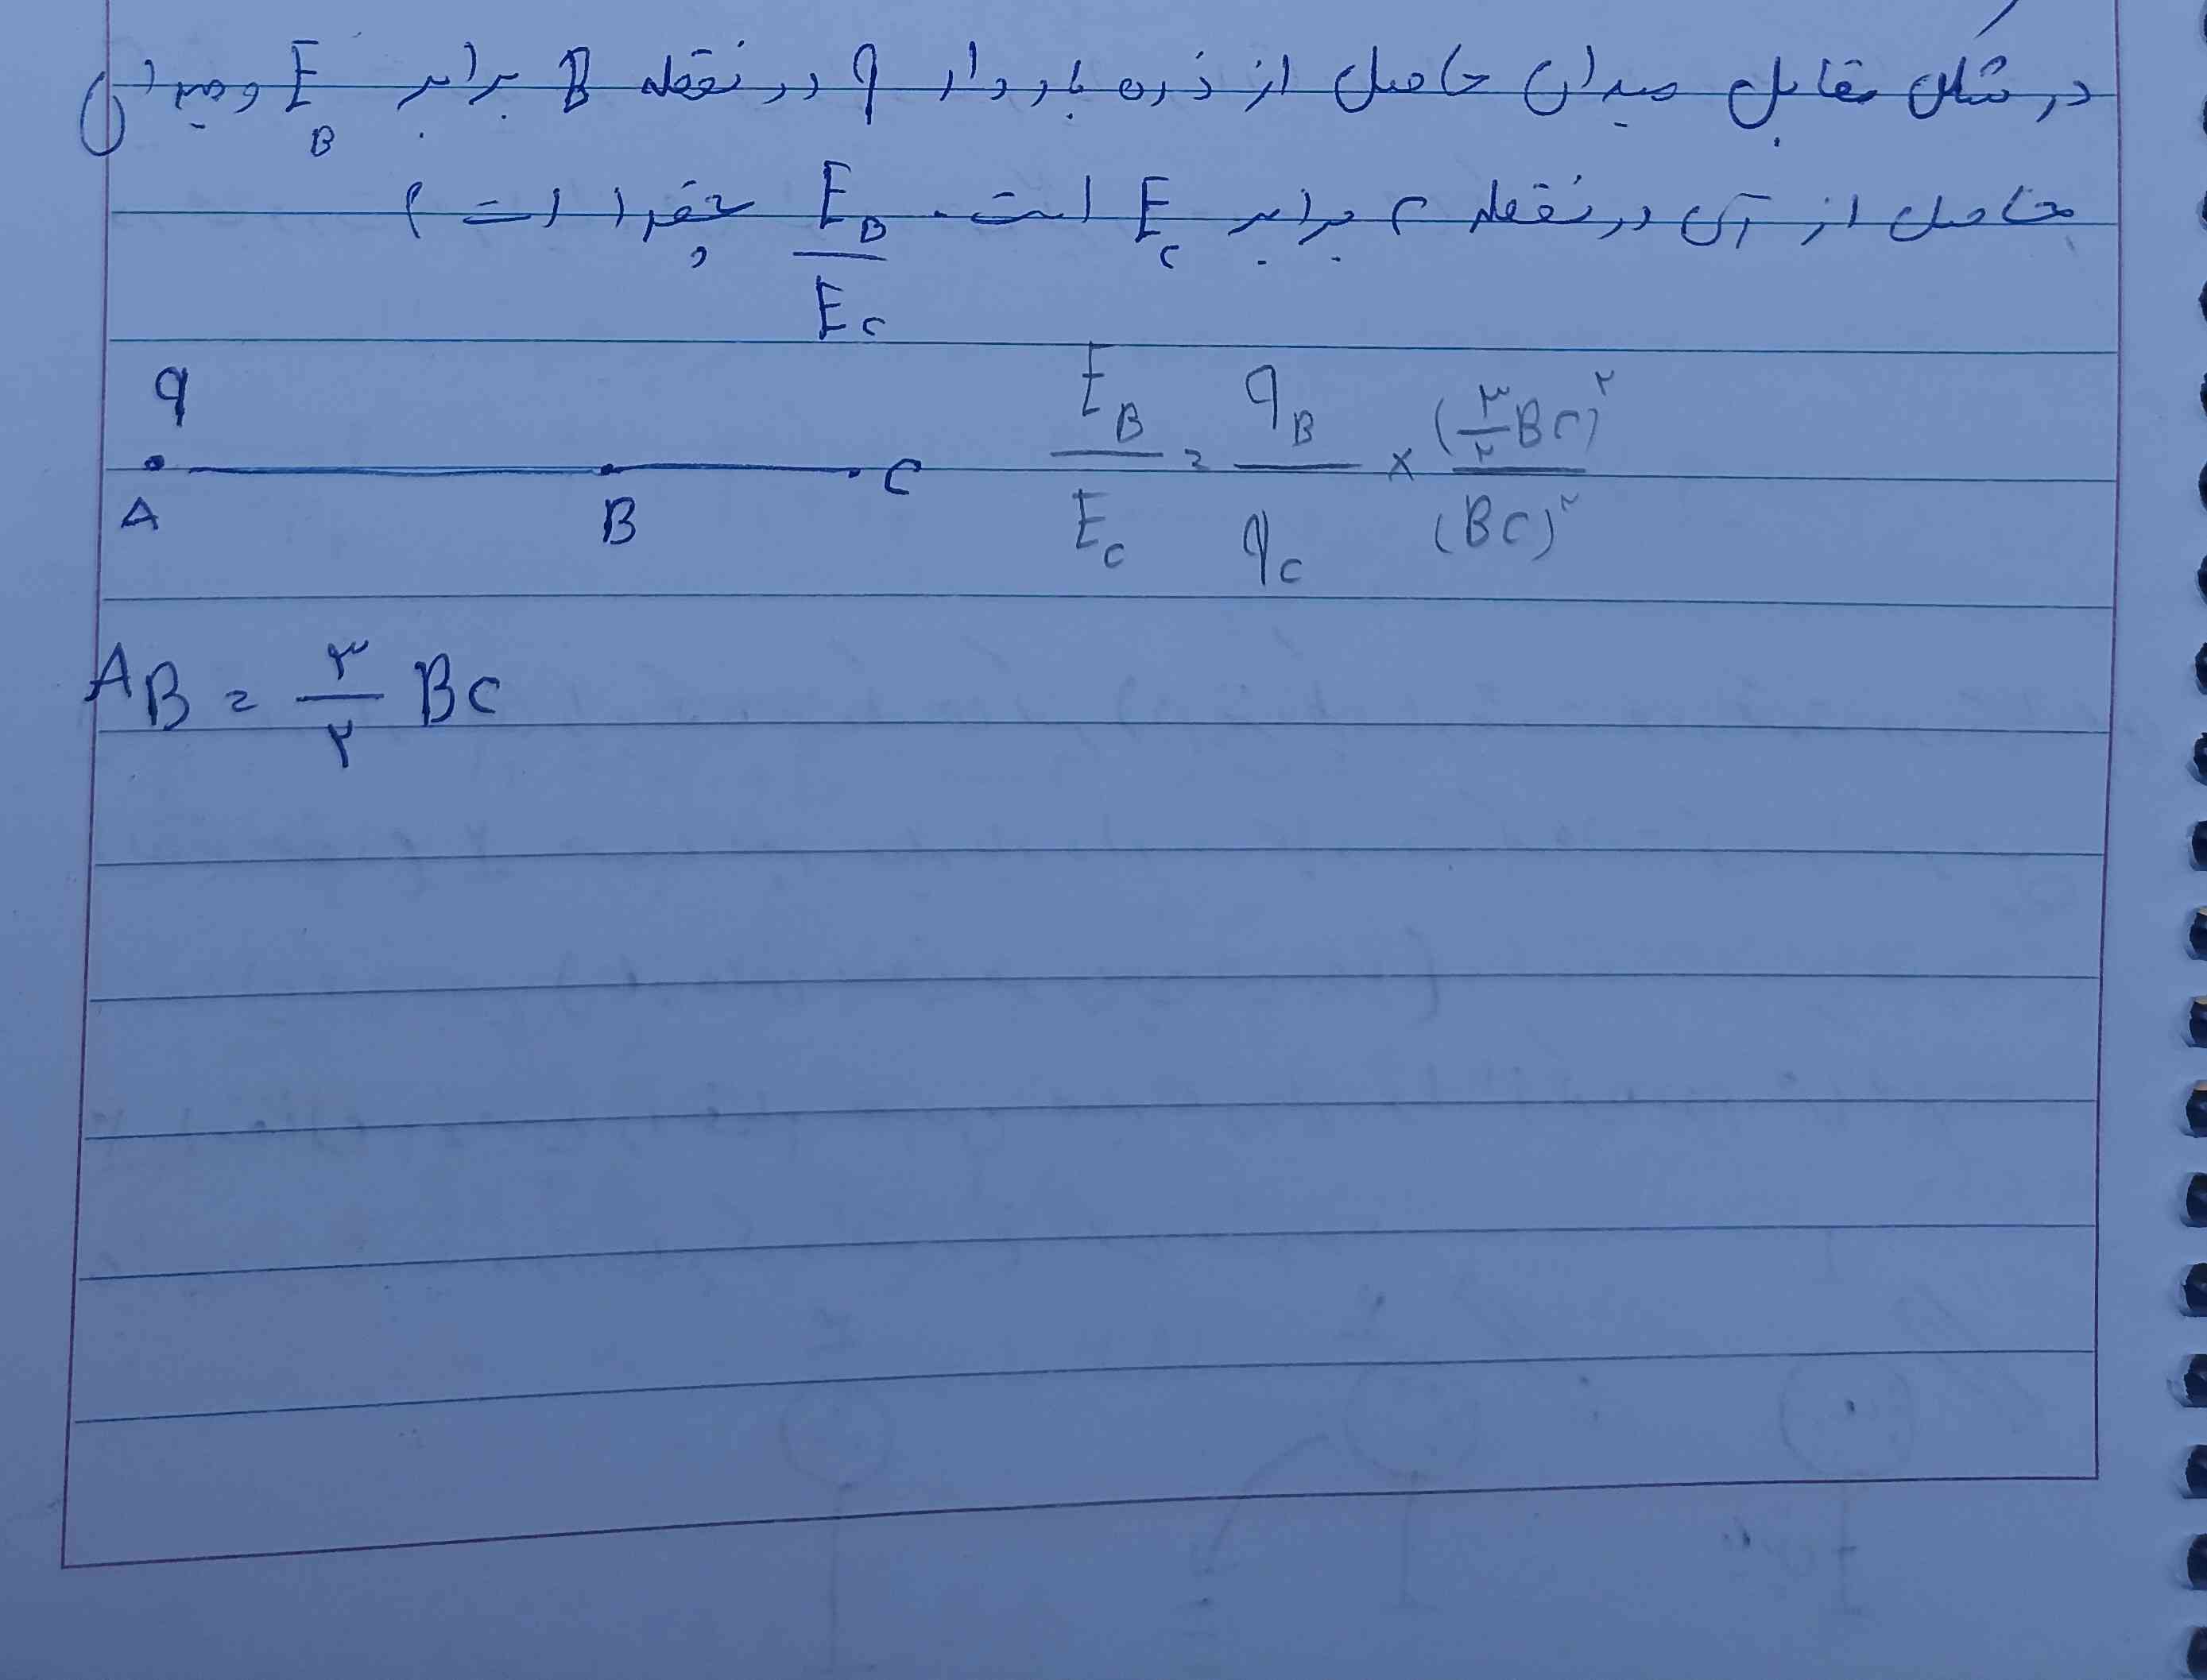 در شکل مقابل میدان حاصل از ذره باردار q در نقطه B برابر E_B و میدان
حاصل از آن در نقطه C برابر E_C است. E_B/E_C چقدر است؟
q
A B C
E_B/E_C = q_B/q_C × (۳/۲ BC)^۲/(BC)^۲
AB = ۳/۲ BC